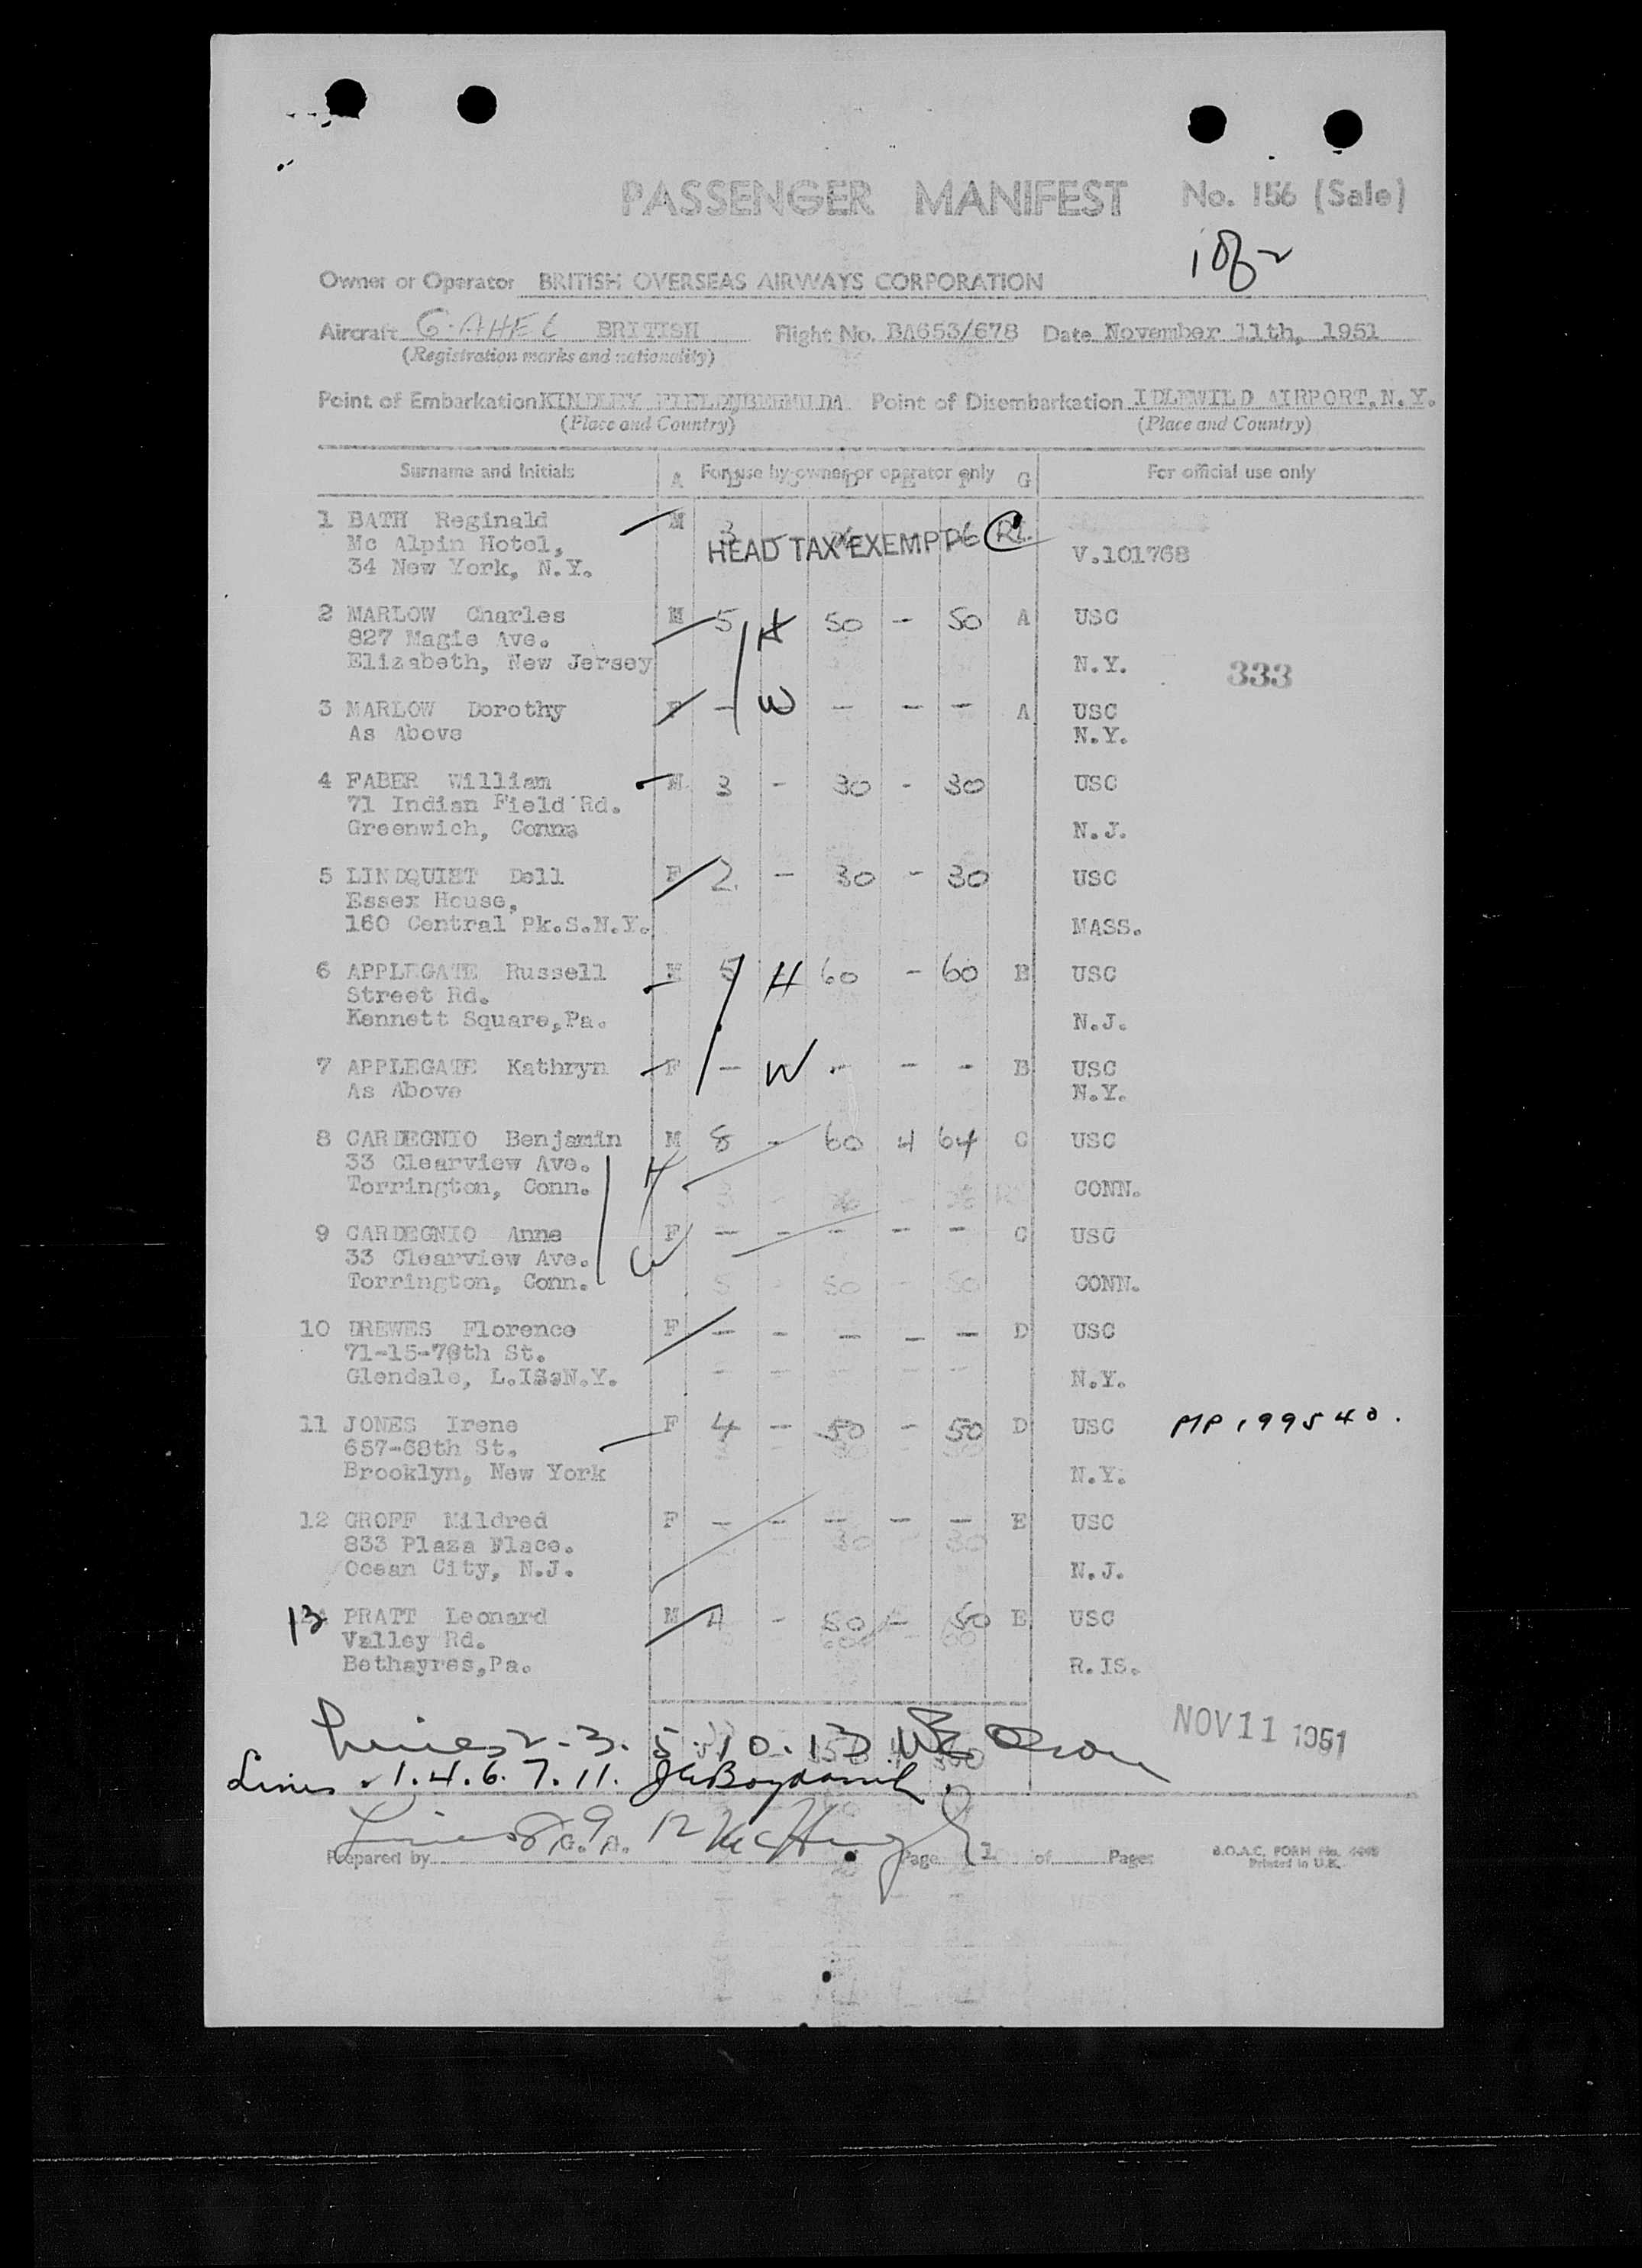 PASSENGER MANIFEST No. 156 (Sale)
1 of 2
Owner or Operator BRITISH OVERSEAS AIRWAYS CORPORATION
Aircraft G-AHEL BRITISH Flight No. BA653/678 Date November 11th, 1951
(Registration marks and nationality)
Point of Embarkation KINDLEY FIELD, BERMUDA Point of Disembarkation IDLEWILD AIRPORT, N.Y.
(Place and Country) (Place and Country)
Surname and Initials A For use by owner or operator only G For official use only
1 BATH Reginald M
Mc Alpin Hotel, HEAD TAX EXEMPT V.101768
34 New York, N.Y.
2 MARLOW Charles M 5 H 50 - 50 A USC
827 Magie Ave.
Elizabeth, New Jersey N.Y. 333
3 MARLOW Dorothy F - W - - - A USC
As Above N.Y.
4 FABER William M 3 - 30 - 30 USC
71 Indian Field Rd.
Greenwich, Conn. N.J.
5 LINDQUIST Dell F 2 - 30 - 30 USC
Essex House,
160 Central Pk.S.N.Y. MASS.
6 APPLEGATE Russell M 5 H 60 - 60 B USC
Street Rd.
Kennett Square,Pa. N.J.
7 APPLEGATE Kathryn F - W - - - B USC
As Above N.Y.
8 CARDEGNIO Benjamin M 8 - 60 4 64 C USC
33 Clearview Ave. H
Torrington, Conn. CONN.
9 CARDEGNIO Anne F - - - - - C USC
33 Clearview Ave. W
Torrington, Conn. CONN.
10 DREWES Florence F - - - - - D USC
71-15-78th St.
Glendale, L.IS.N.Y. N.Y.
11 JONES Irene F 4 - 50 - 50 D USC MP 199540.
657-68th St.
Brooklyn, New York N.Y.
12 GROFF Mildred F - - - - - E USC
833 Plaza Place.
Ocean City, N.J. N.J.
13 PRATT Leonard M 4 - 50 - 50 E USC
Valley Rd.
Bethayres,Pa. R.IS.
Lines 2-3.5.10.13 Olson NOV 11 1951
Lines 1.4.6.7.11.
Lines 8, 9, 12 McHugh
Prepared by Page 1 of Pages B.O.A.C. FORM No.
Printed in U.K.